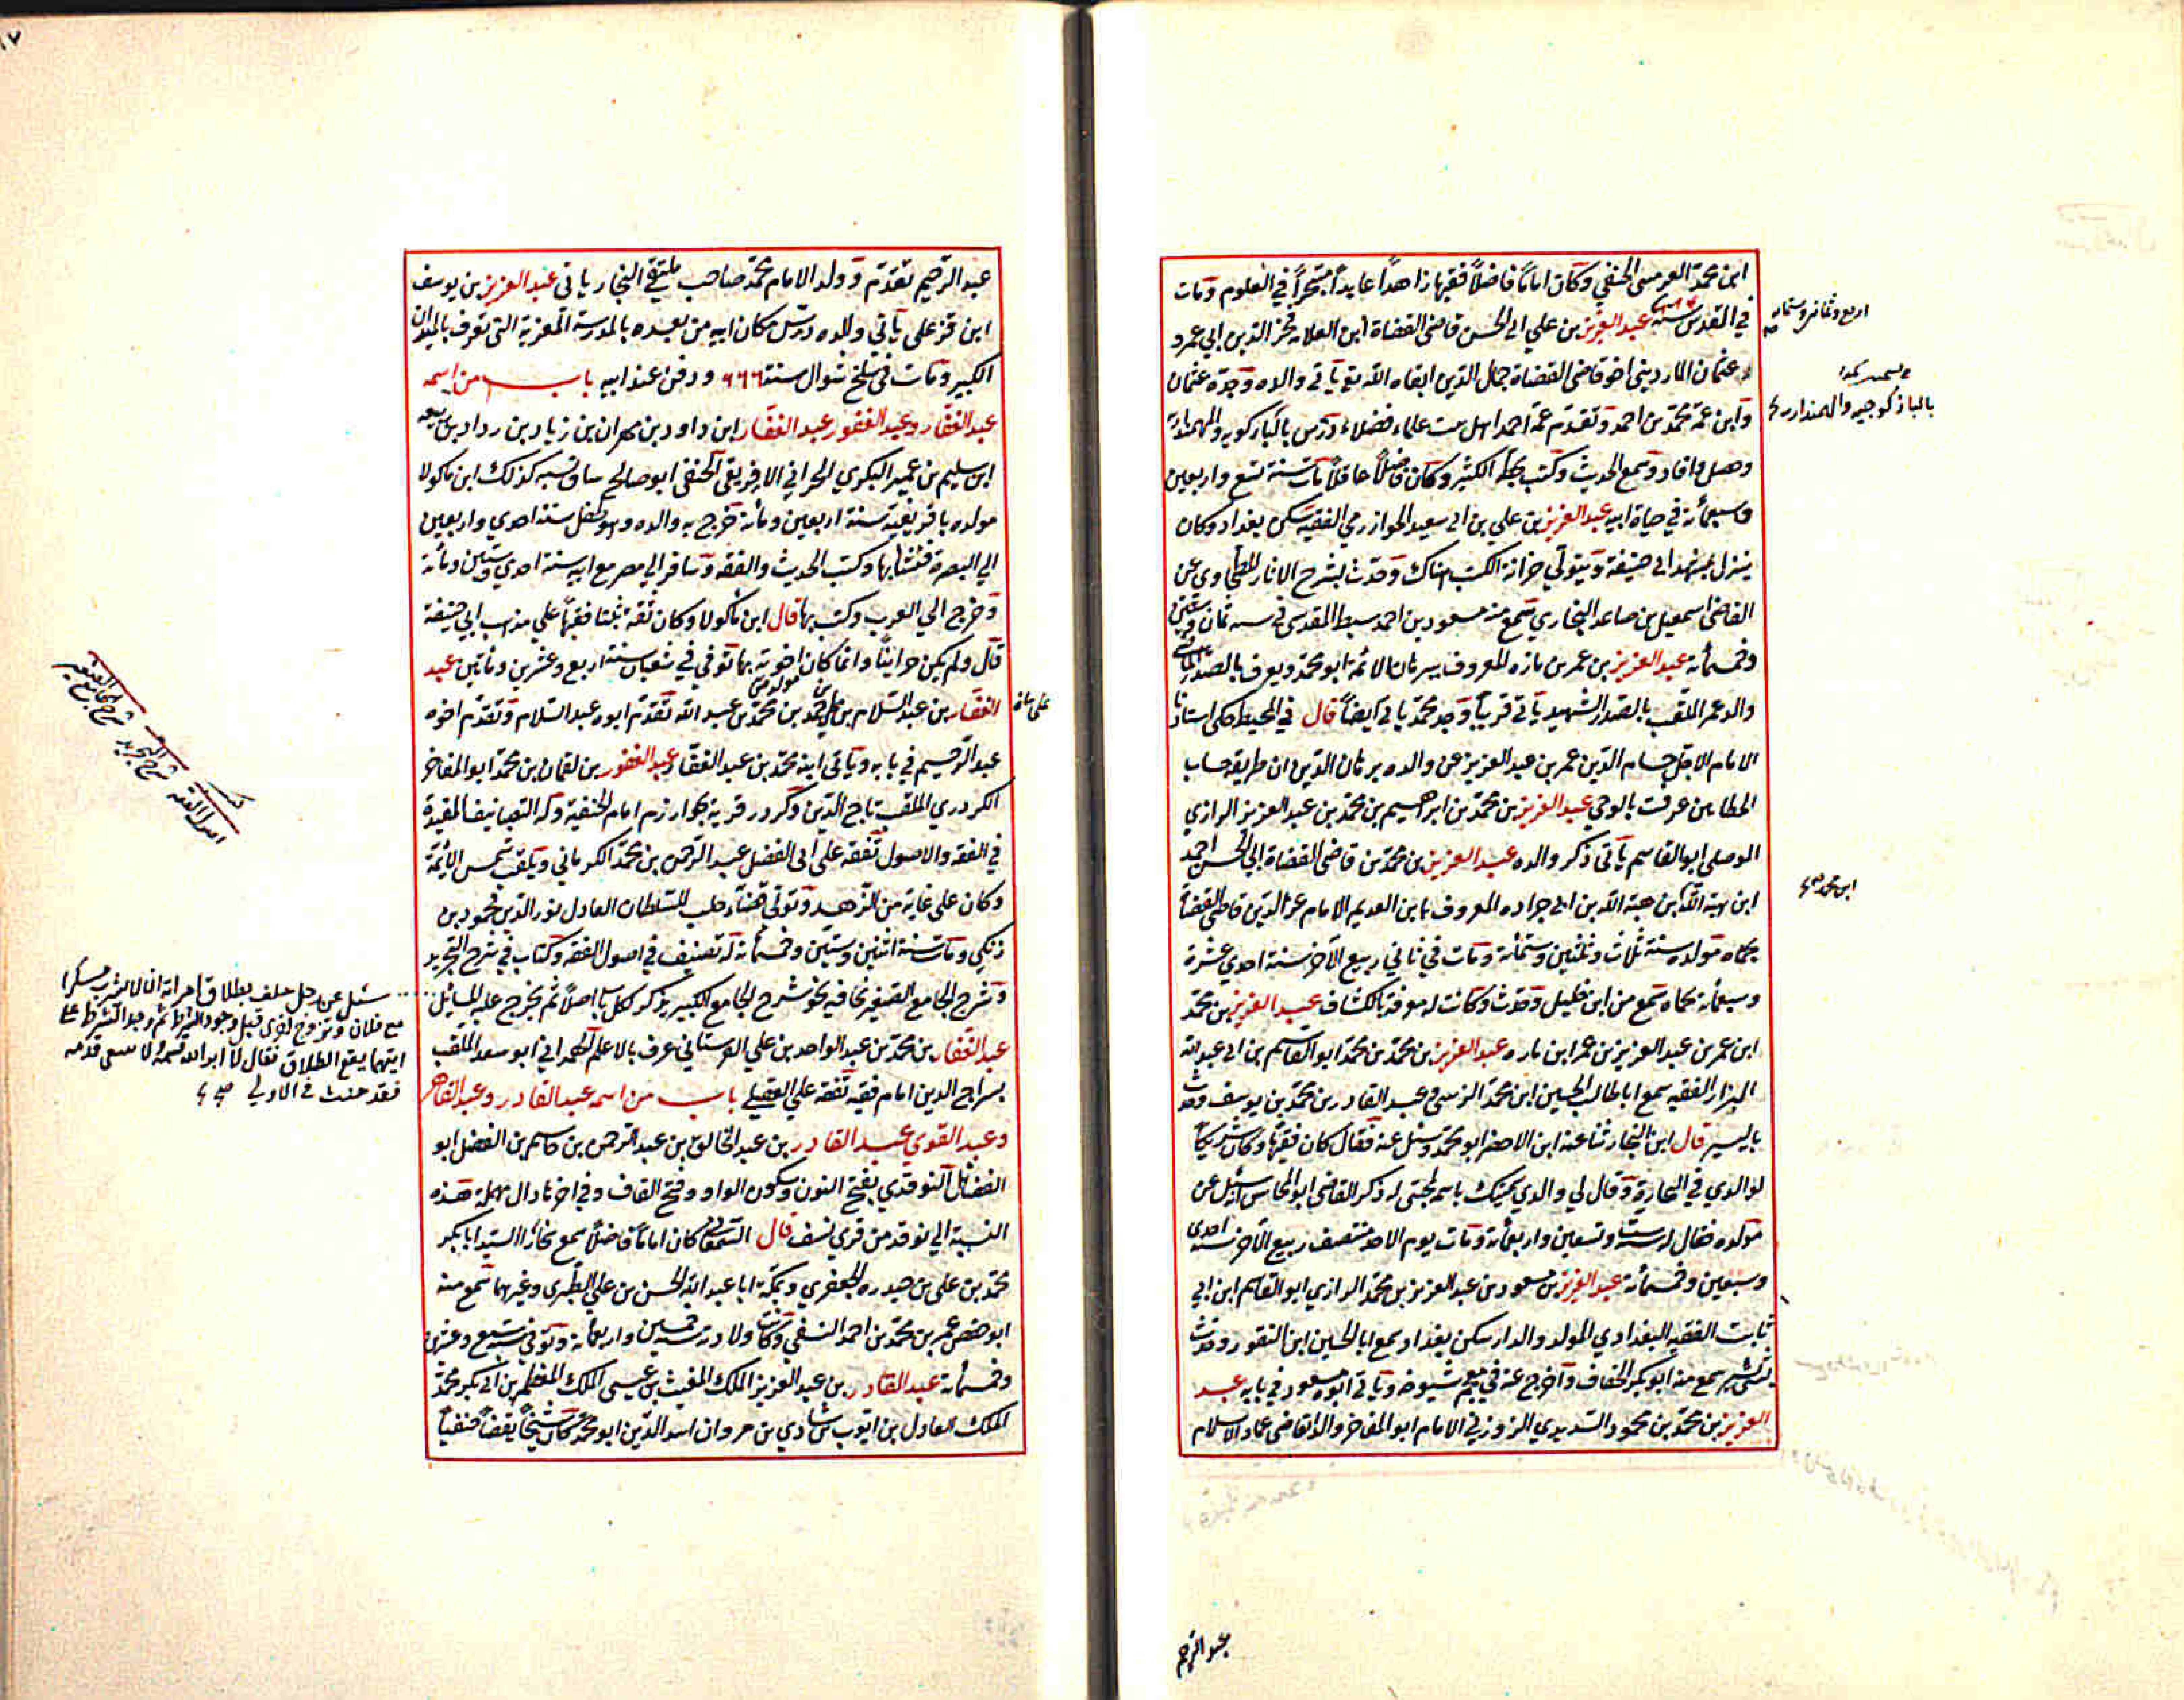 ابن محمد العرسى الحنفي وكان اماماً فاضلاً فقيها زاهداً عابداً متبحراً في العلوم ومات
في القدس سنة عبد العزيز بن علي ابي الحسن قاضى القضاة ابن العلامة فخر الدين ابي عمرو
عثمان المارديني اخو قاضى القضاة جمال الدين ابقاه الله يأتي والده وجده عثمان
وابن عمه محمد بن احمد وتقدم عمه احمد اهل بيت علماء فضلاء درس
وحصل وافاد وسمع الحديث وكتب بخطه الكثير وكان فاضلاً عاقلاً مات سنة تسع واربعين
وسبعمائة في حياة ابيه عبد العزيز بن علي بن ابي سعيد الخوارزمي الفقيه سكن بغداد وكان
ينزل بمشهد ابي حنيفة ويتولي خزانة الكتب هناك وحدث بشرح الاثار للطحاوي عن
القاضي اسمعيل بن صاعد البخاري سمع منه مسعود بن احمد سبط المقدسي في سنة ثمان وستين
وخمسمائة عبد العزيز بن عمر بن مازه المعروف ببرهان الائمة ابو محمد ويعرف بالصدر الماضي
والد عمر الملقب بالصدر الشهيد يأتي قريباً وجد محمد يأتي ايضاً قال في المحيط حكى استاذنا
الامام الاجل حسام الدين عمر بن عبد العزيز عن والده برهان الدين ان طريقه حساب
الخطاين عرفت بالوحي عبد العزيز بن محمد بن ابرهيم بن محمد بن عبد العزيز الرازي
الموصلي ابو القاسم يأتي ذكر والده عبد العزيز بن محمد بن قاضى القضاة ابي الحسن احمد
ابن هبة الله ابن هبة الله بن ابي جراده المعروف بابن العديم الامام عز الدين قاضى القضاة
بحماه مولده سنة ثلاث وثلثين وستمائة ومات في ثاني ربيع الآخر سنة احدي عشرة
وسبعمائة بحماه سمع من ابن خليل وحدث وكانت له معرفة بالكشاف عبد العزيز بن محمد
ابن عمر بن عبد العزيز بن عمر ابن مازه عبد العزيز بن محمد بن محمد ابو القاسم بن ابي عبد الله
البزار الفقيه سمع اباطالب الحسين ابن محمد الزينبي وعبد القادر بن محمد بن يوسف وحدث
باليسير قال ابن النجار ثنا عنه ابن الاخضر ابو محمد وسئل عنه فقال كان فقيها وكان شريكاً
لوالدي في التجارة وقال لي والدي سميتك باسمه لمحبتي له ذكر القاضي ابو المحاسن انه سئل عن
مولده فقال لي سنة ست وتسعين واربعمائة ومات يوم الاحد منتصف ربيع الآخر سنة احدى
وسبعين وخمسمائة عبد العزيز بن مسعود بن عبد العزيز بن محمد الرازي ابو القاسم ابن ابي
ثابت الفقيه البغدادي المولد والدار سكن بغداد سمع ابا الحسين ابن النقور وحدث
سمع منه ابو بكر الخفاف واخرج عنه في معجم شيوخه ويأتي ابوه مسعود في بابه عبد
العزيز بن محمد بن محمود السديدي الزوزني الامام ابو المفاخر والد القاضي عماد الاسلام
اربع وثمانين وستمائة
ابن محمد صح
عبد الرحيم
عبد الرحيم تقدم وولد الامام محمد صاحب ملتقى البحار ياتي عبد العزيز بن يوسف
ابن قزعلى يأتي والده درس مكان ابيه من بعده بالمدرسة المعزية التي تعرف بالميدان
الكبير ومات في سلخ شوال سنة ٦٦٦ ودفن عند ابيه باب من اسمه
عبد الغفار وعبد الغفور عبد الغفار ابن داود بن مهران بن زياد بن رداد بن ربيعه
ابن سليم بن عمير البكري الحراني الافريقي الحنفي ابو صالح ساق نسبه كذلك ابن ماكولا
مولده بافريقية سنة اربعين ومائة خرج به والده وهو طفل سنة احدي واربعين
الي البصرة فنشأ بها وكتب الحديث والفقه وسافر الي مصر مع ابيه سنة احدي وستين ومائة
وخرج الي المغرب وكتب بها قال ابن ماكولا وكان ثقة ثبتا فقيهاً على مذهب ابي حنيفة
قال ولم يكن حرانياً وانما كان اخوته بها توفي في شعبان سنة اربع وعشرين ومأتين عبد
الغفار بن عبد السلام بن علي بن محمد بن محمد بن عبد الله تقدم ابوه عبد السلام وتقدم اخوه
عبد الرحيم في بابه ويأتي ابنه محمد بن عبد الغفار عبد الغفور بن لقمان بن محمد ابو المفاخر
الكردري الملقب تاج الدين وكردر قرية بخوارزم امام الحنفية وله التصانيف المفيدة
في الفقه والاصول تفقه على ابي الفضل عبد الرحمن بن محمد الكرماني ويلقب شمس الائمة
وكان على غاية من الزهد وتولى قضاء حلب للسلطان العادل نور الدين محمود بن
زنكي ومات سنة اثنين وستين وخمسمائة له تصنيف في اصول الفقه وكتاب في شرح التجريد
وشرح الجامع الصغير نحا فيه نحو شرح الجامع الكبير يذكر لكل باب اصلاً ثم يخرج عليه المسائل
عبد الغفار بن محمد بن عبد الواحد بن علي عرف بالاعلم ابو سعد الملقب
بسراج الدين امام فقيه تفقه علي باب من اسمه عبد القادر وعبد القاهر
وعبد القوي عبد القادر بن عبد الخالق بن عبد الرحمن بن قاسم بن الفضل ابو
الفضائل النوقدي بفتح النون وسكون الواو وفتح القاف وفي اخرها دال مهملة هذه
النسبة الي نوقد من قري نسف قال السمعاني كان اماماً فاضلاً سمع بخارا السيد ابا بكر
محمد بن علي بن حيدره الجعفري وبمكة ابا عبد الله الحسن بن علي الطبري وغيرهما سمع منه
ابو حفص عمر بن محمد بن احمد النسفي وكانت ولادته سنة خمسين واربعمائة وتوفي سنة سبع وعشرين
وخمسمائة عبد القادر بن عبد العزيز الملك المغيث بن عيسى الملك المعظم بن ابي بكر محمد
الملك العادل بن ايوب بن شادي بن مروان اسد الدين ابو محمد كان شيخاً يقظاً حنفياً
سئل عن رجل حلف بطلاق امراته ان لا يشرب مسكرا
مع فلان وتزوج اخرى قبل وجود الشرط ثم وجد الشرط على
ايتهما يقع الطلاق فقال
فقد حنث في الاولي صح